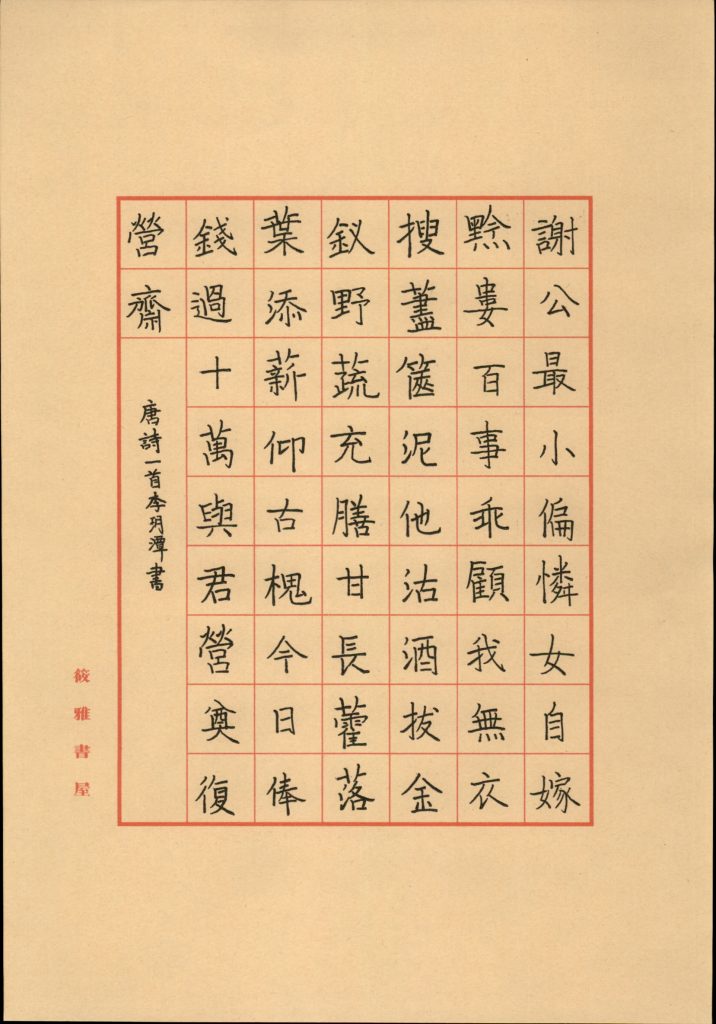 謝公最小偏憐女自嫁
黔婁百事乖顧我無衣
搜藎篋泥他沽酒拔金
釵野蔬充膳甘長藿落
葉添薪仰古槐今日俸
錢過十萬與君營奠復
營齋
唐詩一首李玥潭書
筱雅書屋